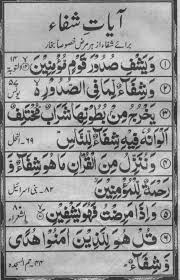 آیات شفاء
برائے شفاء از ہر مرض خصوصاً بخار
① وَيَشْفِ صُدُورَ قَوْمٍ مُّؤْمِنِينَ
② وَشِفَاءٌ لِّمَا فِي الصُّدُورِ
③ يَخْرُجُ مِنْ بُطُونِهَا شَرَابٌ مُّخْتَلِفٌ
أَلْوَانُهُ فِيهِ شِفَاءٌ لِّلنَّاسِ ۶۹۔ النحل
④ وَنُنَزِّلُ مِنَ الْقُرْآنِ مَا هُوَ شِفَاءٌ وَ
رَحْمَةٌ لِّلْمُؤْمِنِينَ ۸۲۔ بنی اسرائیل
⑤ وَإِذَا مَرِضْتُ فَهُوَ يَشْفِينِ ۸۰ الشعراء
⑥ قُلْ هُوَ لِلَّذِينَ آمَنُوا هُدًى
وَشِفَاءٌ ۴۴۔ حم السجدہ